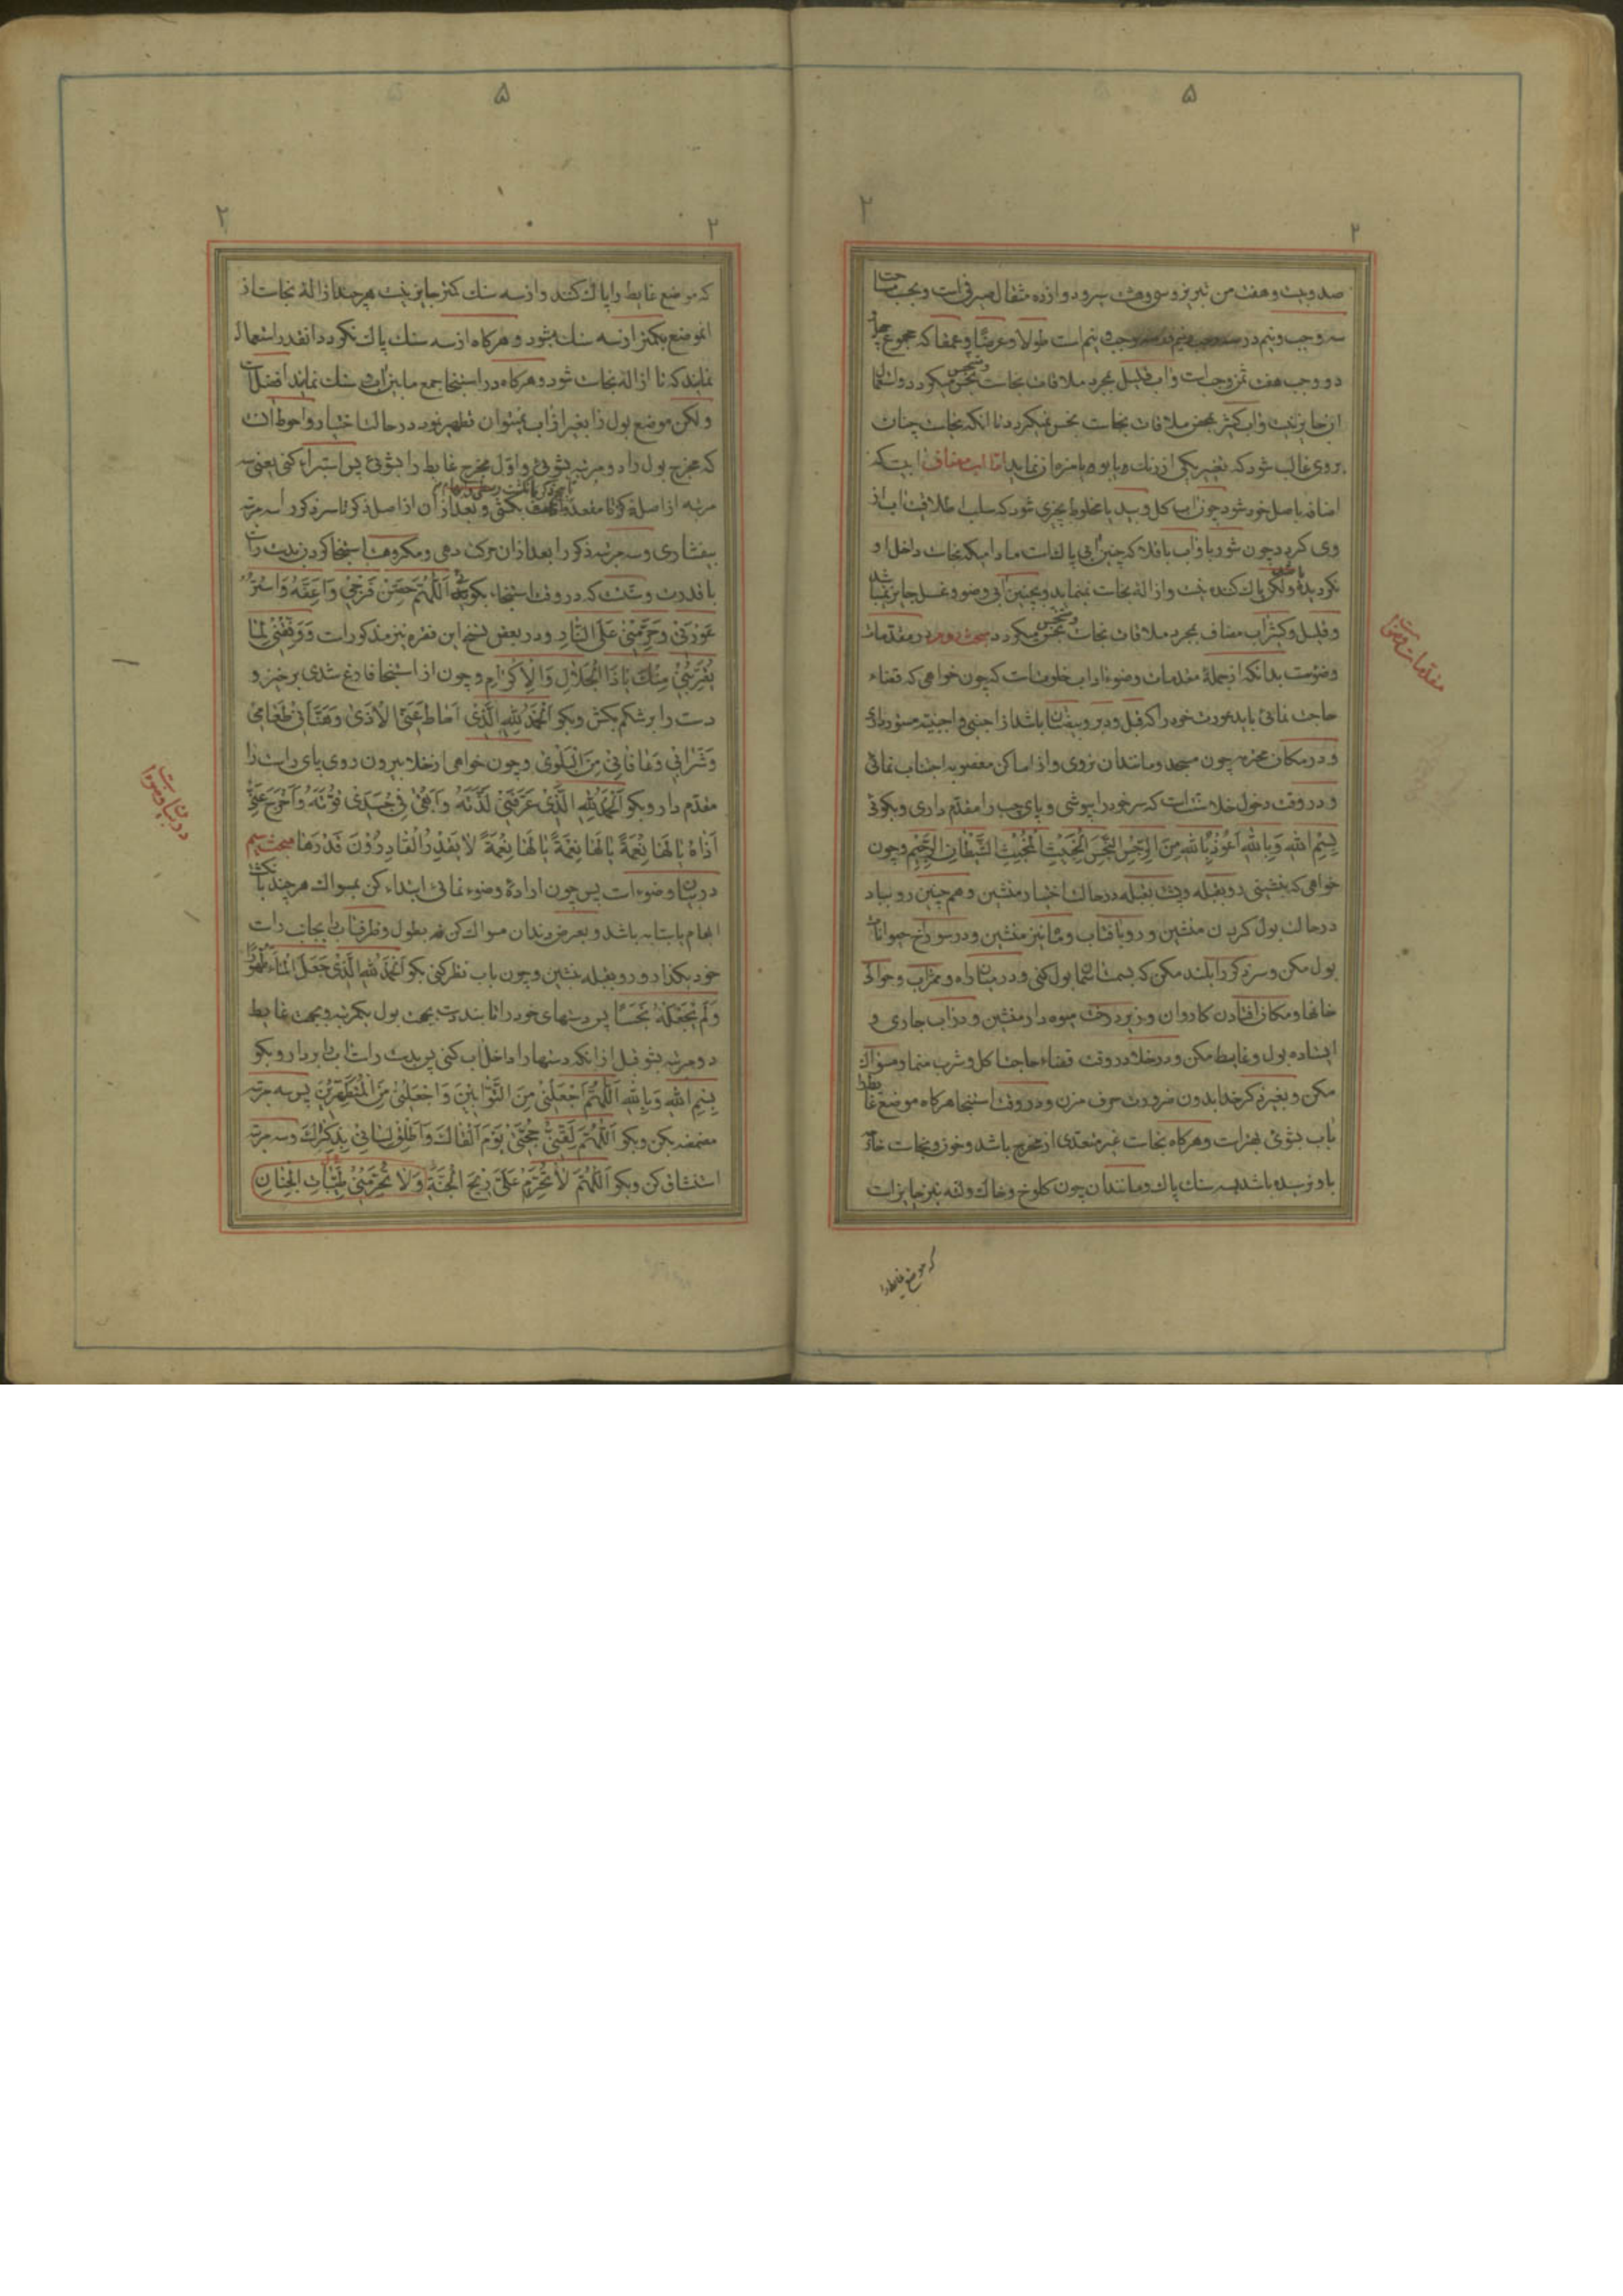 ۵
۲
۲
صد و بیست و هفت من تبریز و سی و هشت سیر و دوازده مثقال صیرفی است و بحسب مساحت
سه وجب و نیم در سه وجب و نیم است طولا و عرضا و عمقا که مجموع چهل
دو وجب هفت ثمن وجب است و آب قلیل بمجرد ملاقات نجاست نجس میکردد و استعمال
آن جایز نیست و آب کثیر بمحض ملاقات نجاست نجس نمیکردد تا آنکه نجاست چنان
بروی غالب شود که تغییر یکی از رنک و یا بو و یا مزه آن نماید اما آب مضاف آبیست که
اضافه باصل خود شود چون آب کل و سیب یا مخلوط بچیزی شود که سلب اطلاقیت آب از
وی کردد چون شوربا و آب باقلا که چنین آبی پاک است مادامیکه نجاست داخل او
نکردیده ولکن پاک کننده نیست و ازالهٔ نجاست نمینماید و بچنین آبی وضو و غسل جایز نمیباشد
و قلیل و کثیر آب مضاف بمجرد ملاقات نجاست نجس میکردد مبحث دوم در مقدمات
وضوست بدانکه از جملهٔ مقدمات وضو آداب خلوتست که چون خواهی که قضاء
حاجت نمائی باید عورت خود را که قبل و دبر و بیضتان باشد از اجنبی و اجنبیه مستور داری
و در مکان محترمه چون مسجد و مانند آن نروی و از اماکن مغصوبه اجتناب نمائی
و در وقت دخول خلا سنت است که سر خود را بپوشی و پای چپ را مقدم داری و بکوئی
بِسْمِ اللهِ وَبِاللهِ اَعُوذُ بِاللهِ مِنَ الرِّجْسِ النَّجِسِ الْخَبِيثِ الْمُخْبِثِ الشَّيْطَانِ الرَّجِيمِ و چون
خواهی که بنشینی رو بقبله و پشت بقبله در حالت اختیار منشین و هم چنین رو بباد
در حالت بول کردن منشین و رو بآفتاب و ماه نیز منشین و در سوراخ حیوانات
بول مکن و سر ذکر را بلند مکن که بسمت آسمان بول کنی و در میان راه و ممر آب و حوالی
خانها و مکان افتادن کاروان و زیر درخت میوه دار منشین و در آب جاری و
ایستاده بول و غایط مکن و در خلا در وقت قضاء حاجت اکل و شرب منما و مسواک
مکن و بغیر ذکر خدا بدون ضرورت حرف مزن و در وقت استنجا هرکاه موضع غایط
باب بشوئی بهتر است و هرکاه نجاست غیر متعدی از مخرج باشد و خون و نجاست خارج
باو نرسیده باشد بسه سنک پاک و مانند آن چون کلوخ و خاک و لته نیز جایز است
مقدمات وضوست
که موضع غایط را
۵
۲
۲
که موضع غایط را پاک کند و از سه سنک کمتر جایز نیست هر چند ازالهٔ نجاست از
آنموضع بکمتر از سه سنک بشود و هرکاه از سه سنک پاک نکردد آنقدر استعمال
نمایند که تا ازالهٔ نجاست شود و هرکاه در استنجا جمع مابین آب و سنک نمایند افضل است
ولکن موضع بول را بغیر از آب نمیتوان تطهیر نمود در حالت اختیار و احوط آنست
که مخرج بول را دو مرتبه بشوئی و اول مخرج غایط را بشوئی پس استبراء کنی یعنی سه
مرتبه از اصل ذکر تا مقعد بکشی و بعد از آن از اصل ذکر تا سر ذکر را سه مرتبه
بیفشاری و سه مرتبه ذکر را بعد از آن حرکت دهی و مکروهست استنجا کردن بدست راست
با قدرت و سنت است که در وقت استنجاء بکوئی اَللّٰهُمَّ حَصِّنْ فَرْجِي وَاَعِفَّهُ وَاسْتُرْ
عَوْرَتِي وَحَرِّمْنِي عَلَى النَّارِ و در بعض نسخ این فقره نیز مذکور است وَوَفِّقْنِي لِمَا
يُقَرِّبُنِي مِنْكَ يَا ذَا الْجَلَالِ وَالْاِكْرَامِ و چون از استنجا فارغ شدی برخیز و
دست را بر شکم بکش و بکو اَلْحَمْدُ لِلّٰهِ الَّذِي اَمَاطَ عَنِّي الْاَذٰى وَهَنَّأَنِي طَعَامِي
وَشَرَابِي وَعَافَانِي مِنَ الْبَلْوٰى و چون خواهی از خلا بیرون روی پای راست را
مقدم دار و بکو اَلْحَمْدُ لِلّٰهِ الَّذِي عَرَّفَنِي لَذَّتَهُ وَاَبْقٰى فِي جَسَدِي قُوَّتَهُ وَاَخْرَجَ عَنِّي
اَذَاهُ يَا لَهَا نِعْمَةً يَا لَهَا نِعْمَةً يَا لَهَا نِعْمَةً لَا يَقْدِرُ الْقَادِرُونَ قَدْرَهَا مبحث سیم
در بیان وضوء است پس چون ارادهٔ وضوء نمائی ابتداء کن بمسواک هر چند بانکشت
ابهام یا سبابه باشد و بعرض دندان مسواک کن نه بطول و ظرف آب را بجانب راست
خود بکذار و رو بقبله بنشین و چون باب نظر کنی بکو اَلْحَمْدُ لِلّٰهِ الَّذِي جَعَلَ الْمَاءَ طَهُورًا
وَلَمْ يَجْعَلْهُ نَجَسًا پس دستهای خود را تا بند دست بجهت بول یکمرتبه و بجهت غایط
دو مرتبه بشو قبل از آنکه دستها را داخل آب کنی پس بدست راست آب را بردار و بکو
بِسْمِ اللهِ وَبِاللهِ اَللّٰهُمَّ اجْعَلْنِي مِنَ التَّوَّابِينَ وَاجْعَلْنِي مِنَ الْمُتَطَهِّرِينَ پس سه مرتبه
مضمضه بکن و بکو اَللّٰهُمَّ لَقِّنِي حُجَّتِي يَوْمَ اَلْقَاكَ وَاَطْلِقْ لِسَانِي بِذِكْرِكَ و سه مرتبه
استنشاق کن و بکو اَللّٰهُمَّ لَا تُحَرِّمْ عَلَيَّ رِيحَ الْجَنَّةِ وَلَا تُحْرِمْنِي طَيِّبَاتِ الْجِنَانِ
در بیان وضوء است